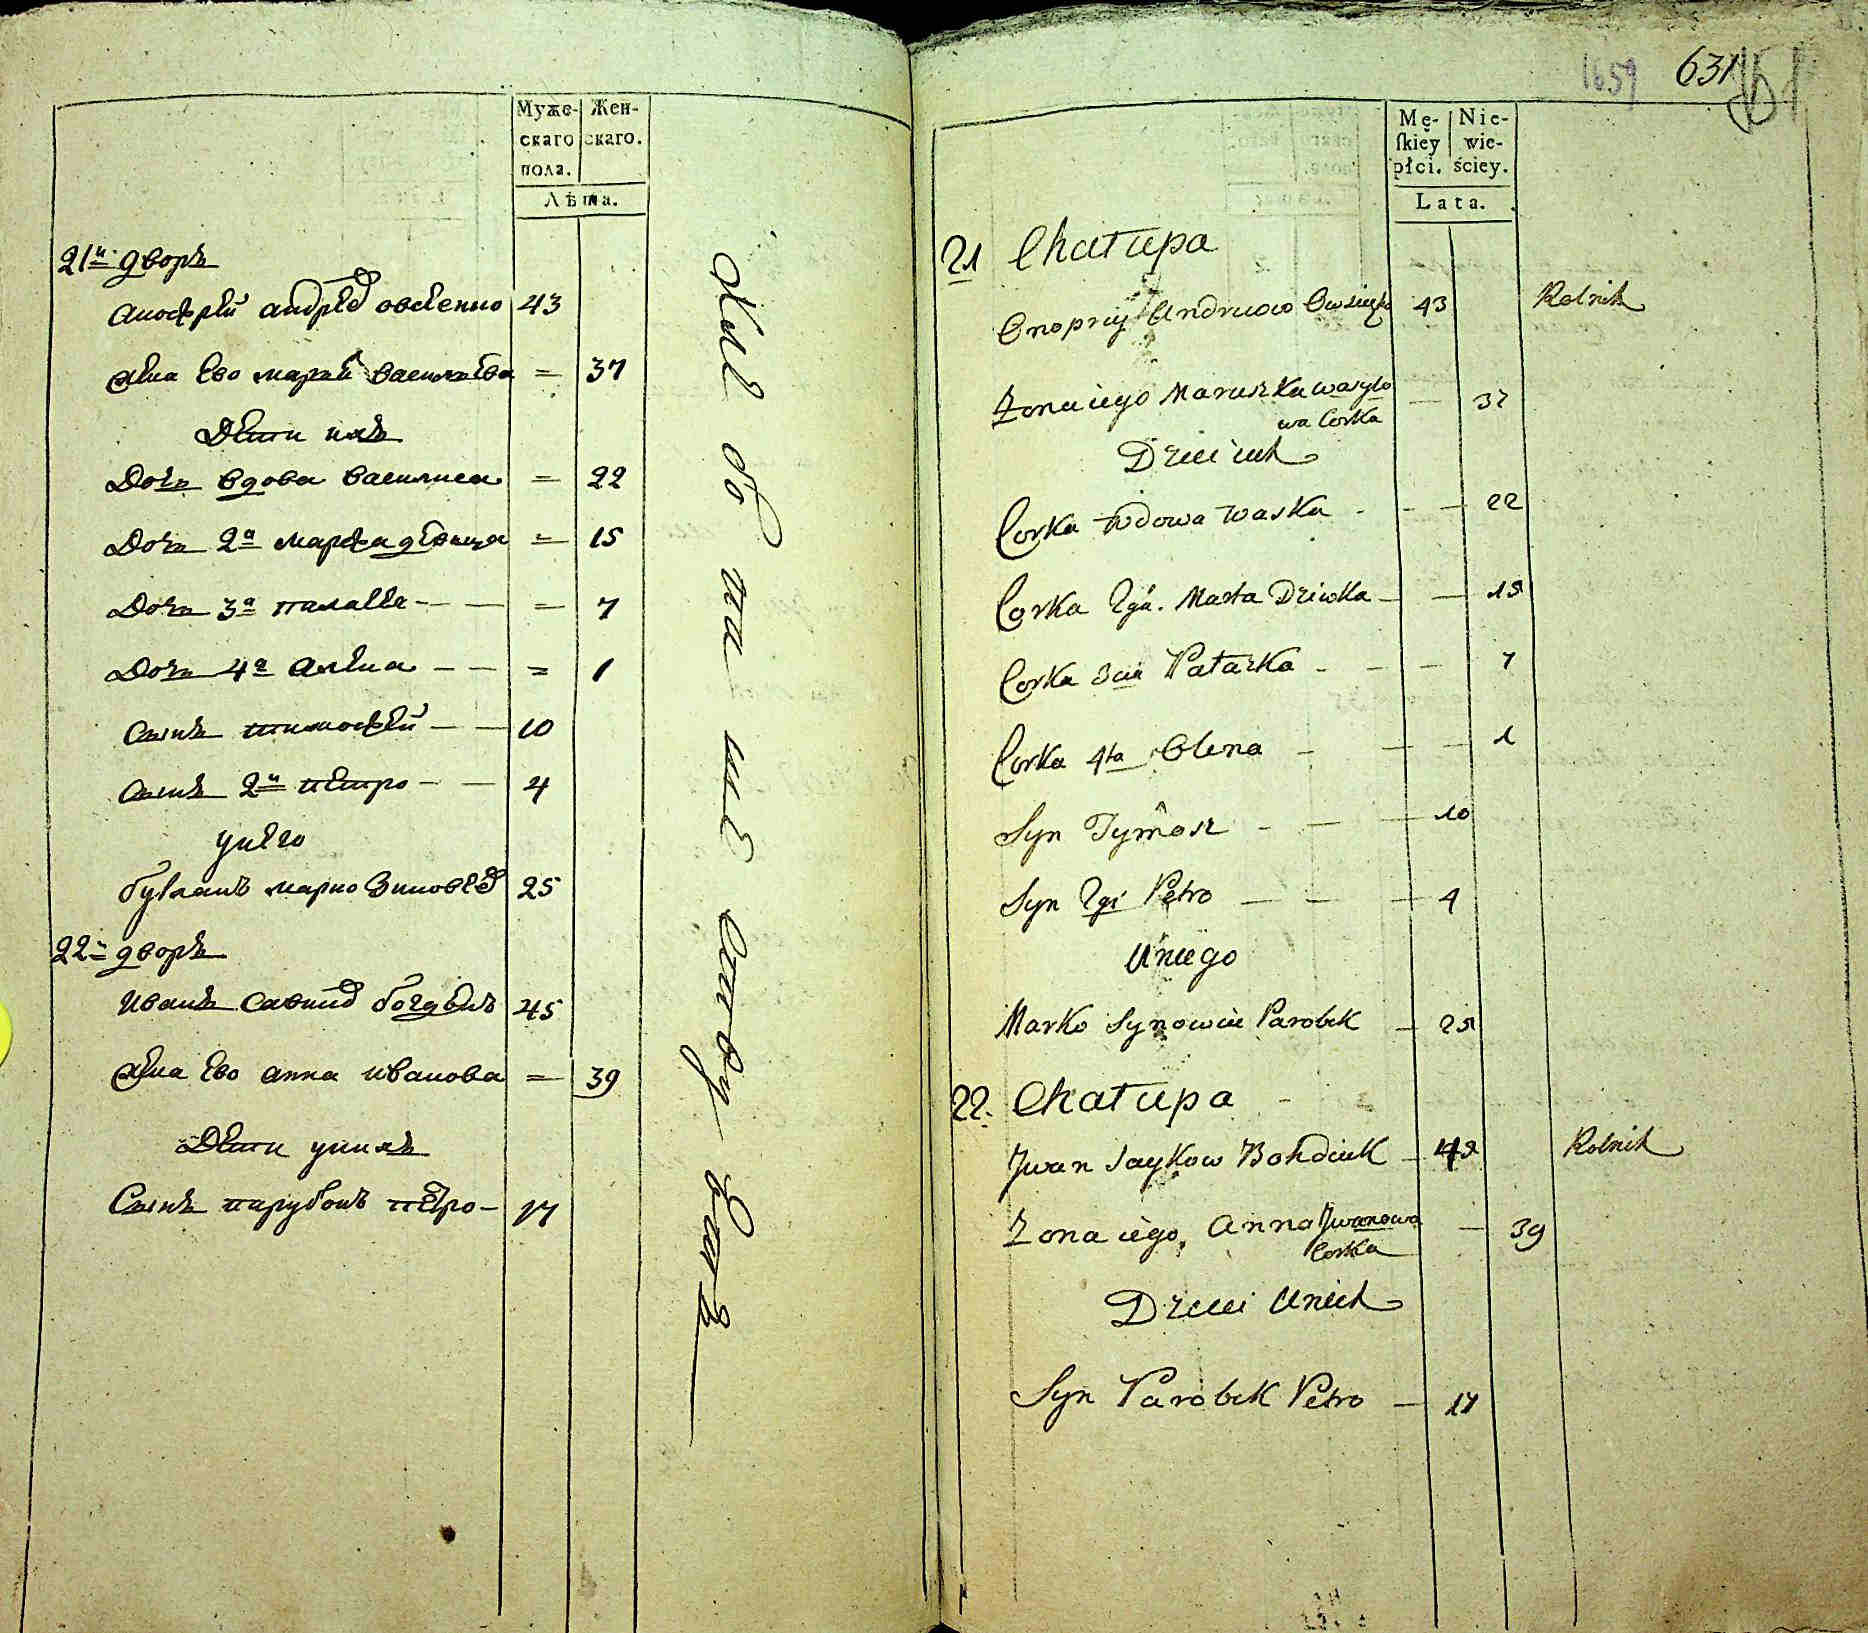 Муже-
скаго
пола.
Жен-
скаго.
Лѣта.
21й дворъ
Анофрѣй Андрѣев овсѣенко 43
жена ево марѧ василева = 37
Дѣти ихъ
Дочь вдова василиса = 22
Дочь 2я марфа девица = 15
Дочь 3я палажка — = 7
Дочь 4я алена — — = 1
Сынъ тимофѣй — — 10
Сынъ 2й петро — — 4
у него
марко Зиновѣев 25
22й дворъ
Иванъ Савков 45
жена ево анна иванова = 39
Дѣти у нихъ
Сынъ парубокъ пётро — 17
1659 631
Mę-
ſkiey
płci.
Nie-
wie-
ściey.
Lata.
21 Chatupa
Onoprey Andruow 43 Rolnik
Zona iego Maruszka wasylo — 37
wa Corka
Dzieci ich
Corka wdowa Waska - - — 22
Corka 2ga. Marta Dziwka — — 15
Corka 3cia Patazka - — — 7
Corka 4ta Olena — — — 1
Syn Tymosz - — — 10
Syn 2gi Petro — — — 4
U niego
Marko Synowiec Parobek — 25
22. Chatupa
Jwan Saykow Bohdiuk — 45 Rolnik
Zona iego, Anna Jwanowa — 39
Corka
Dzieci U nich
Syn Parobek Petro — 17